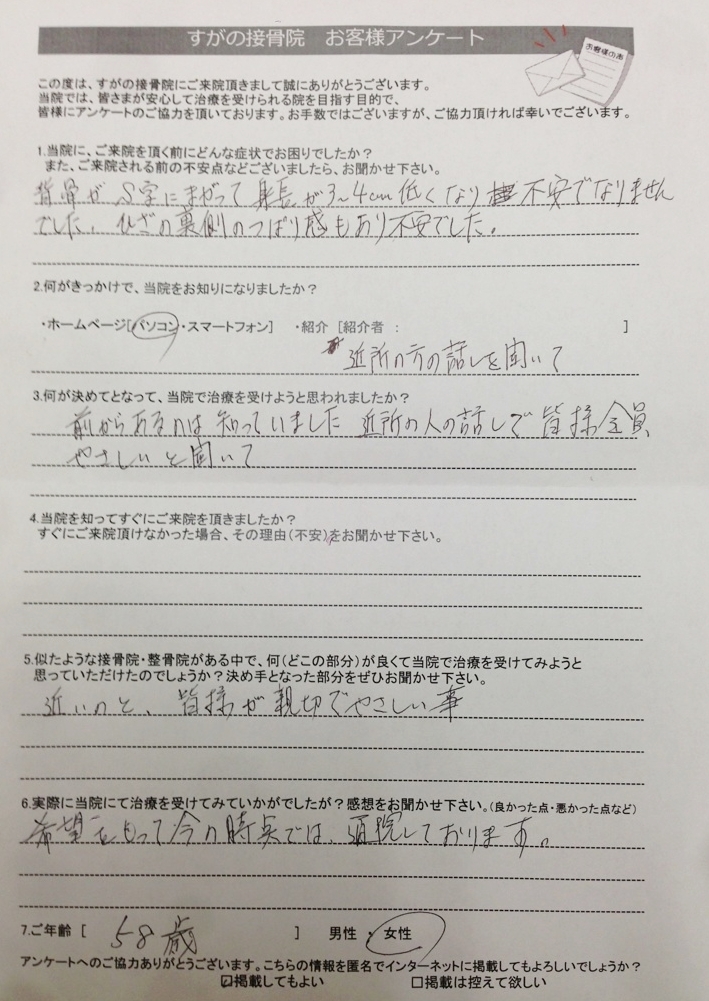 すがの接骨院 お客様アンケート
お客様の声
この度は、すがの接骨院にご来院頂きまして誠にありがとうございます。
当院では、皆さまが安心して治療を受けられる院を目指す目的で、
皆様にアンケートのご協力を頂いております。お手数ではございますが、ご協力頂ければ幸いでございます。
1.当院に、ご来院を頂く前にどんな症状でお困りでしたか?
また、ご来院される前の不安点などございましたら、お聞かせ下さい。
背骨がS字にまがって身長が3~4cm低くなり 不安でなりません
でした、ひざの裏側のつっぱり感もあり不安でした。
2.何がきっかけで、当院をお知りになりましたか?
・ホームページ[パソコン・スマートフォン] ・紹介 [紹介者 : ]
近所の方の話しを聞いて
3.何が決めてとなって、当院で治療を受けようと思われましたか?
前からあるのは知っていました 近所の人の話しで皆様全員
やさしいと聞いて
4.当院を知ってすぐにご来院を頂きましたか?
すぐにご来院頂けなかった場合、その理由(不安)をお聞かせ下さい。
5.似たような接骨院・整骨院がある中で、何(どこの部分)が良くて当院で治療を受けてみようと
思っていただけたのでしょうか?決め手となった部分をぜひお聞かせ下さい。
近いのと、皆様が親切でやさしい事
6.実際に当院にて治療を受けてみていかがでしたが?感想をお聞かせ下さい。(良かった点・悪かった点など)
希望をもって今の時点では、通院しております。
7.ご年齢 [ 58歳 ] 男性・女性
アンケートへのご協力ありがとうございます。こちらの情報を匿名でインターネットに掲載してもよろしいでしょうか?
☑掲載してもよい □掲載は控えて欲しい